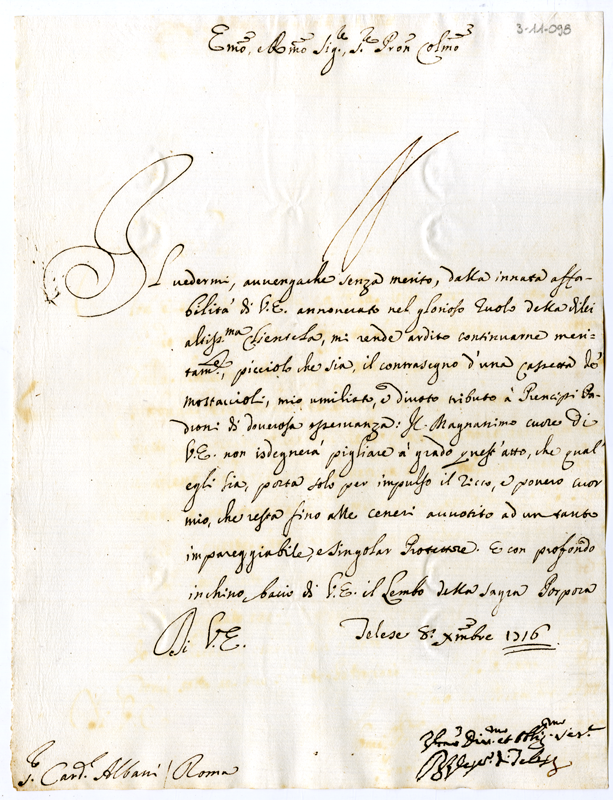 3-11-098
Em͠o, e Rm͠o Sig.re, S.re Pron͠ Colm͠o
Il vedermi, avvengache senza merito, dalla innata affa-
bilità di V.E. annoverato nel glorioso Ruolo della dilei
altiss.ma Clientela, mi rende ardito continuarne meri-
tam.te, picciolo che sia, il contrasegno d'una cassetta de
mostaccioli, mio umiliato, e divoto tributo à Prencipi Pa-
droni di doverosa osservanza: Il Magnanimo cuore di
V.E. non isdegnerà pigliare à grado quest'atto, che qual
egli sia, porta solo per impulso il ricco, e povero cuor
mio, che resta fino alle ceneri avvotito ad un tanto
impareggiabile, e singolar Protettore. E con profondo
inchino, bacio di V.E. il Lembo della Sagra Porpora
Di V.E. Telese 8. Xm͠bre 1716
Div.mo et obblig.mo Ser.e
di Telese
S.r Card.l Albani / Roma